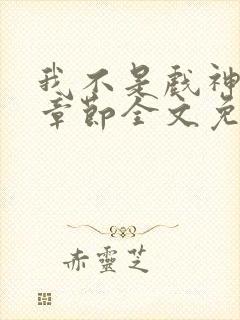 我不是戏神
章节全文免
赤靈芝